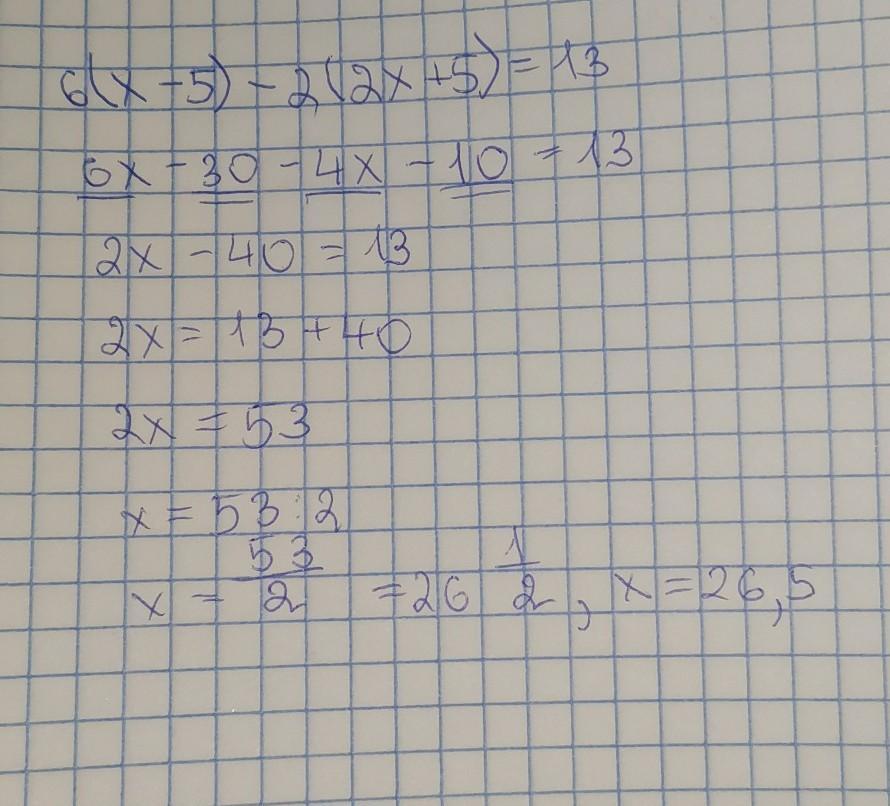 6(x-5)-2(2x+5)=13
6x-30-4x-10=13
2x-40=13
2x=13+40
2x=53
x=53:2
x=53/2=26 1/2, x=26,5